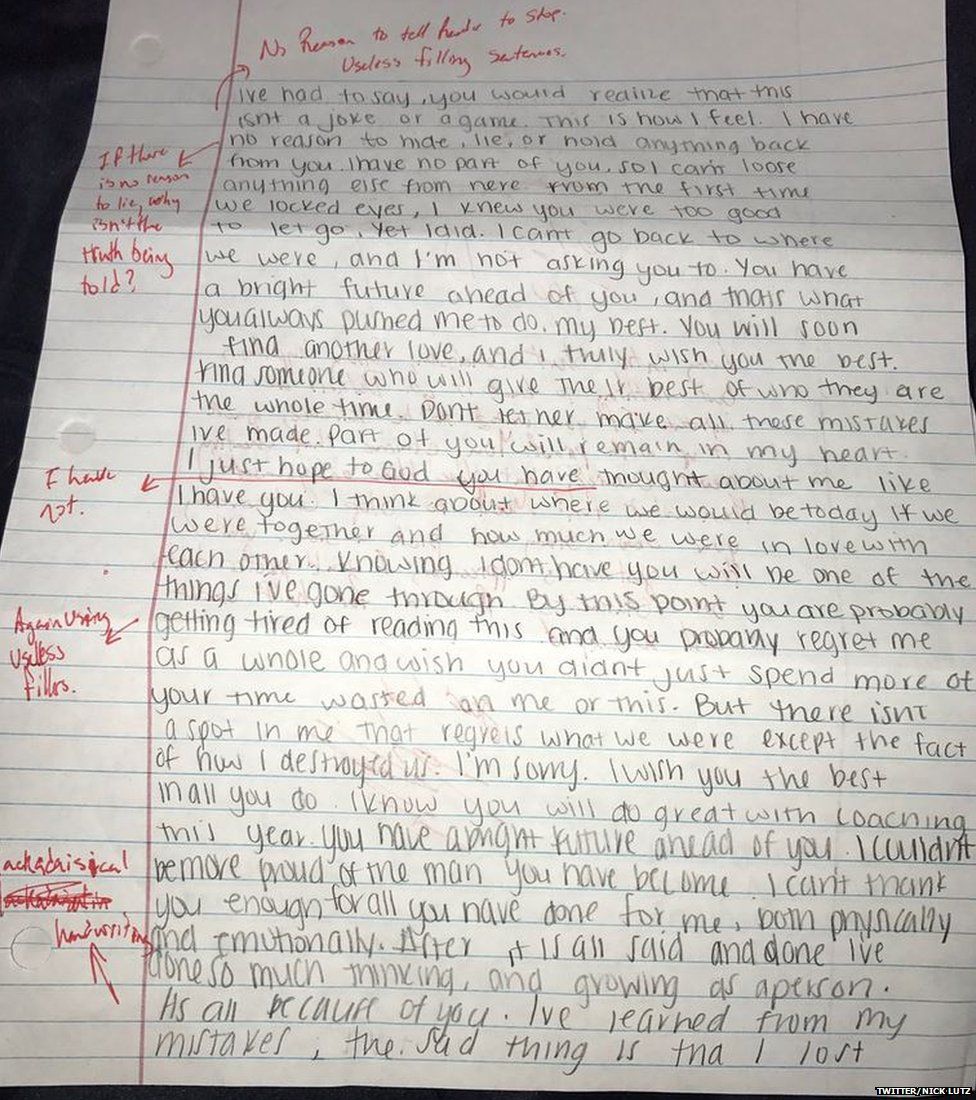 No Reason to tell reader to stop.
Useless filling sentences.
Ive had to say, you would realize that this
isnt a joke or a game. This is how I feel. I have
no reason to hide, lie, or hold anything back
from you. I have no part of you, so I can't loose
anything else from here from the first time
we locked eyes, I knew you were too good
to let go, yet I did. I cant go back to where
we were, and I'm not asking you to. You have
a bright future ahead of you, and thats what
you always pushed me to do. my best. You will soon
find another love, and I truly wish you the best.
find someone who will give their best of who they are
the whole time. Dont let her make all these mistakes
Ive made. Part of you will remain in my heart.
I just hope to God you have thought about me like
I have you. I think about where we would be today if we
were together and how much we were in love with
each other. Knowing I dont have you will be one of the
things i've gone through By this point you are probably
getting tired of reading this and you probably regret me
as a whole and wish you didnt just spend more of
your time wasted on me or this. But there isnt
a spot in me that regrets what we were except the fact
of how I destroyed us. I'm sorry. I wish you the best
in all you do. I know you will do great with coaching
this year. you have a bright future ahead of you. I couldn't
be more proud of the man you have become I can't thank
you enough for all you have done for me, both physically
and emotionally. After it is all said and done ive
done so much thinking, and growing as a person.
Its all because of you. Ive learned from my
mistakes, the sad thing is tha I lost
If there
is no reason
to lie, why
isn't the
truth being
told?
I have
not.
Again using
useless
fillers.
ackadaisical
handwriting
TWITTER/NICK LUTZ